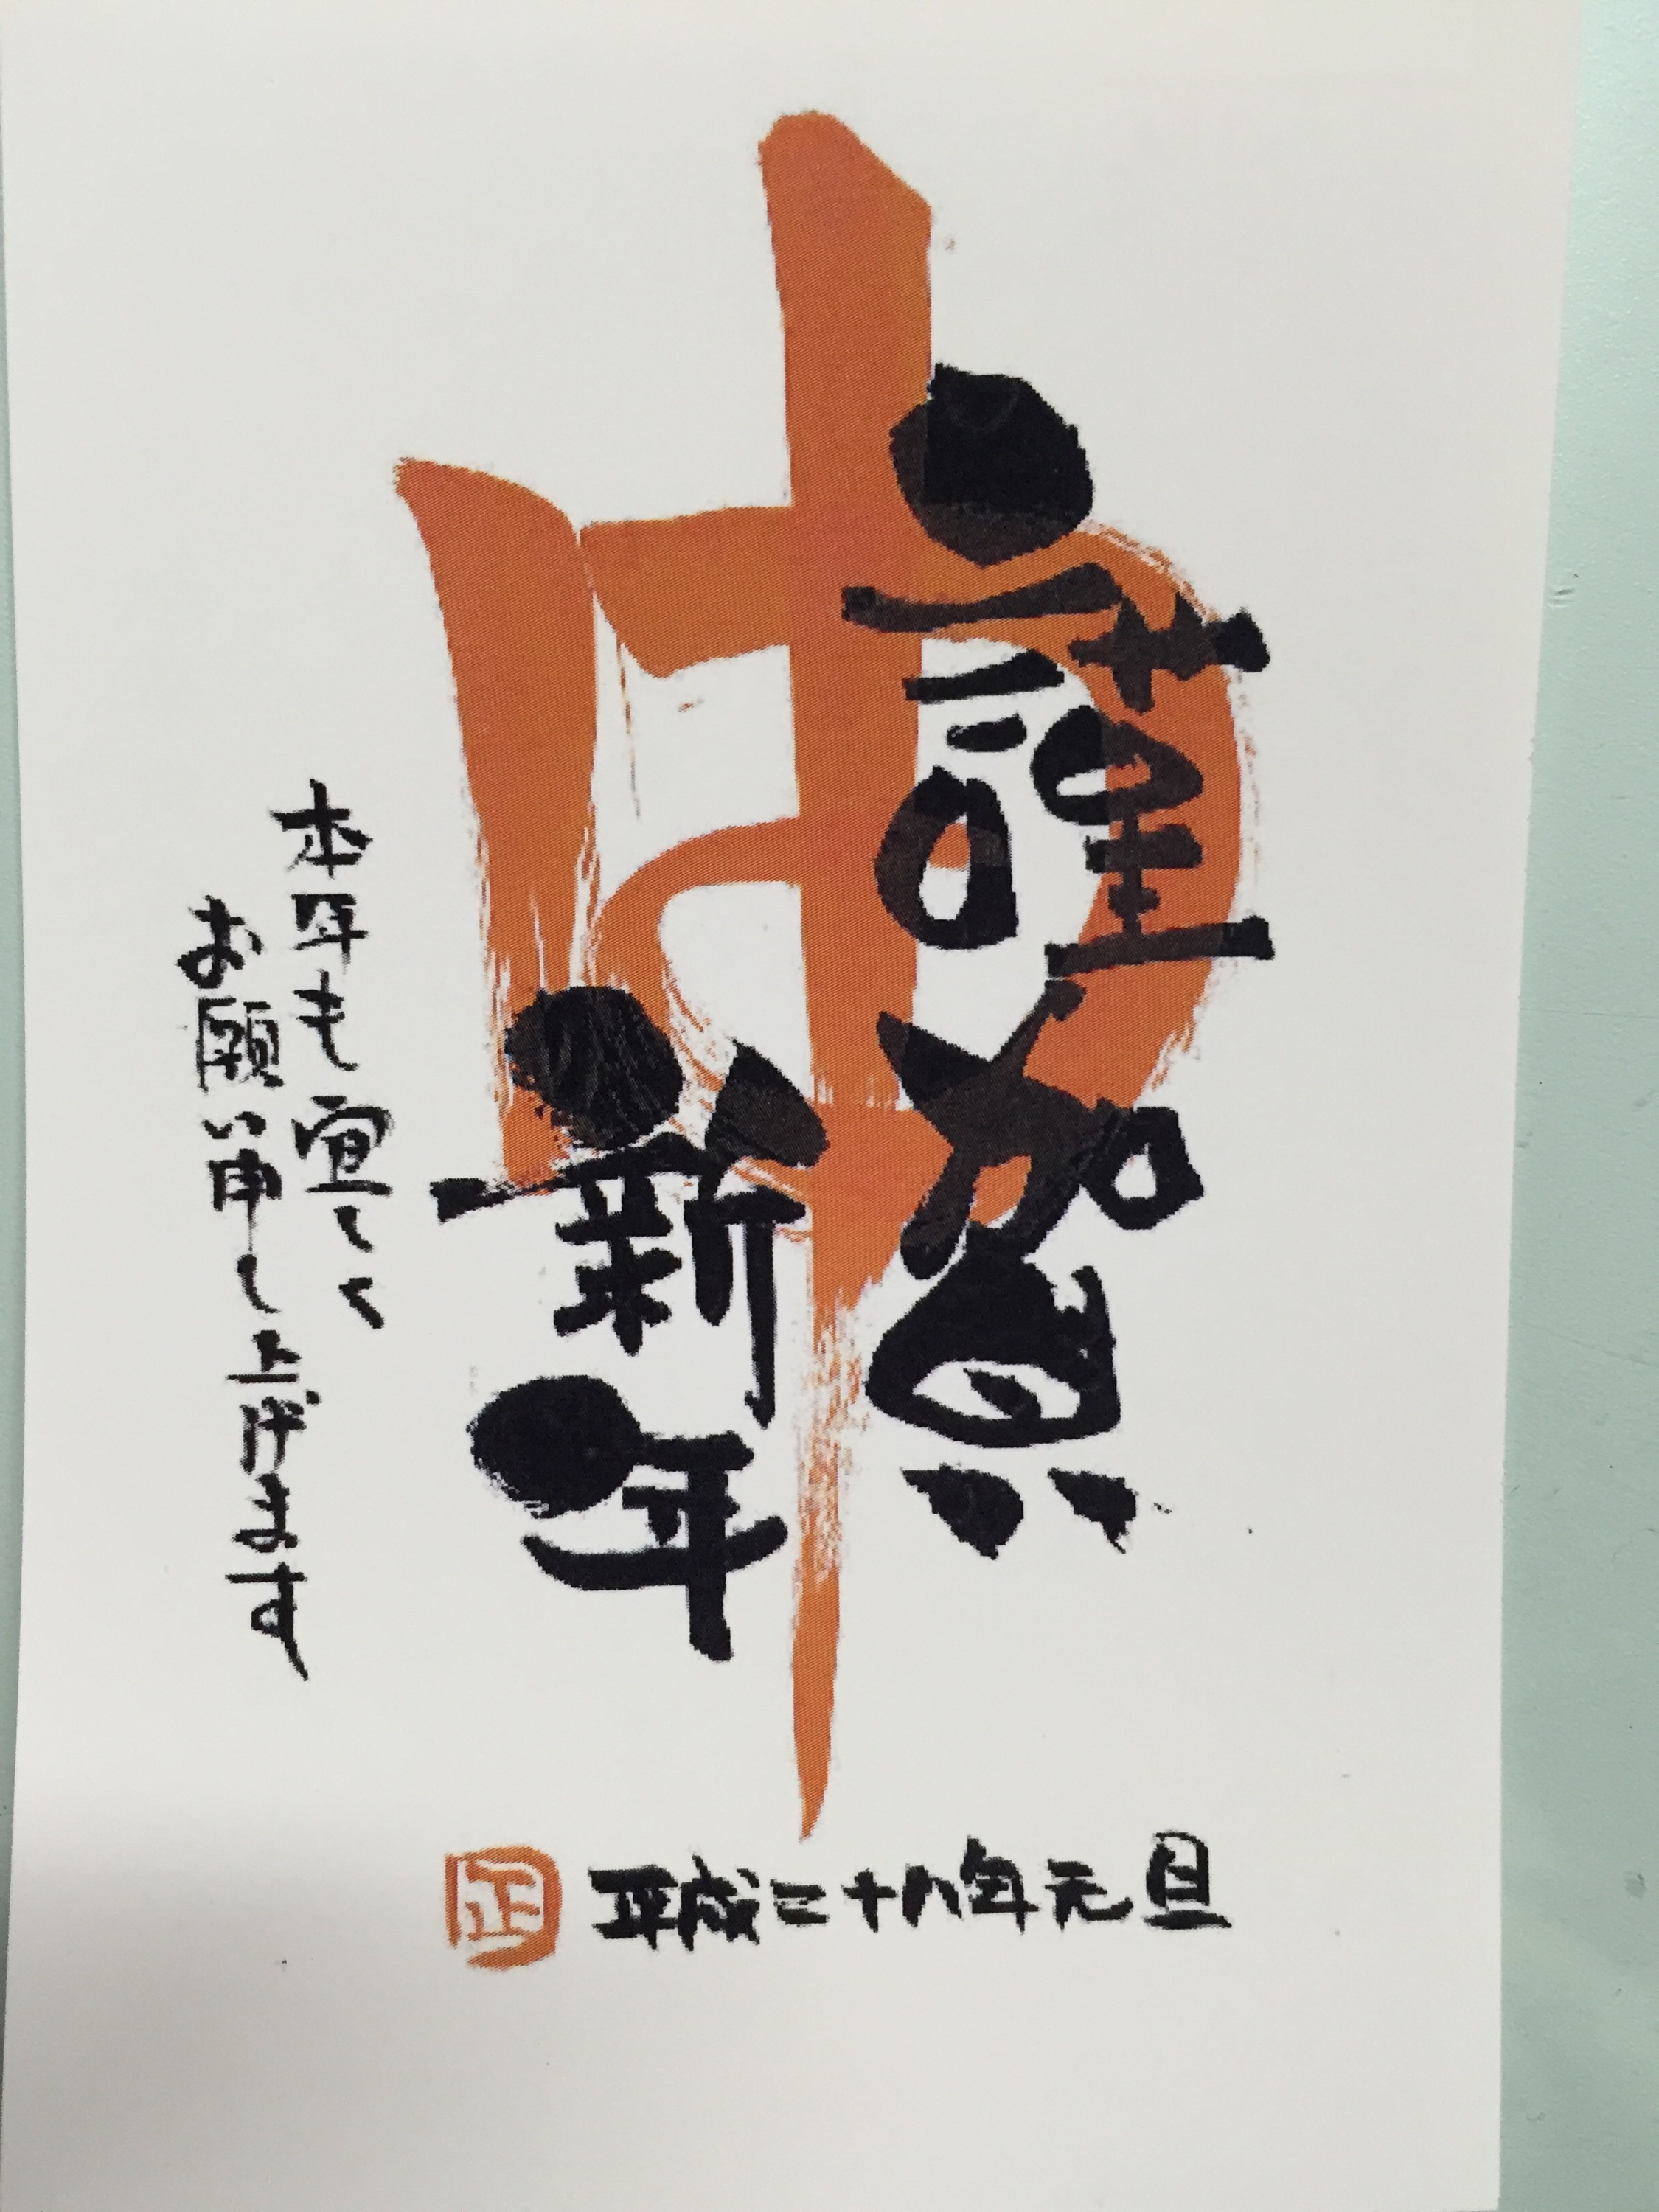 申
謹賀
新年
本年も宜しく
お願い申し上げます
平成二十八年元旦
正